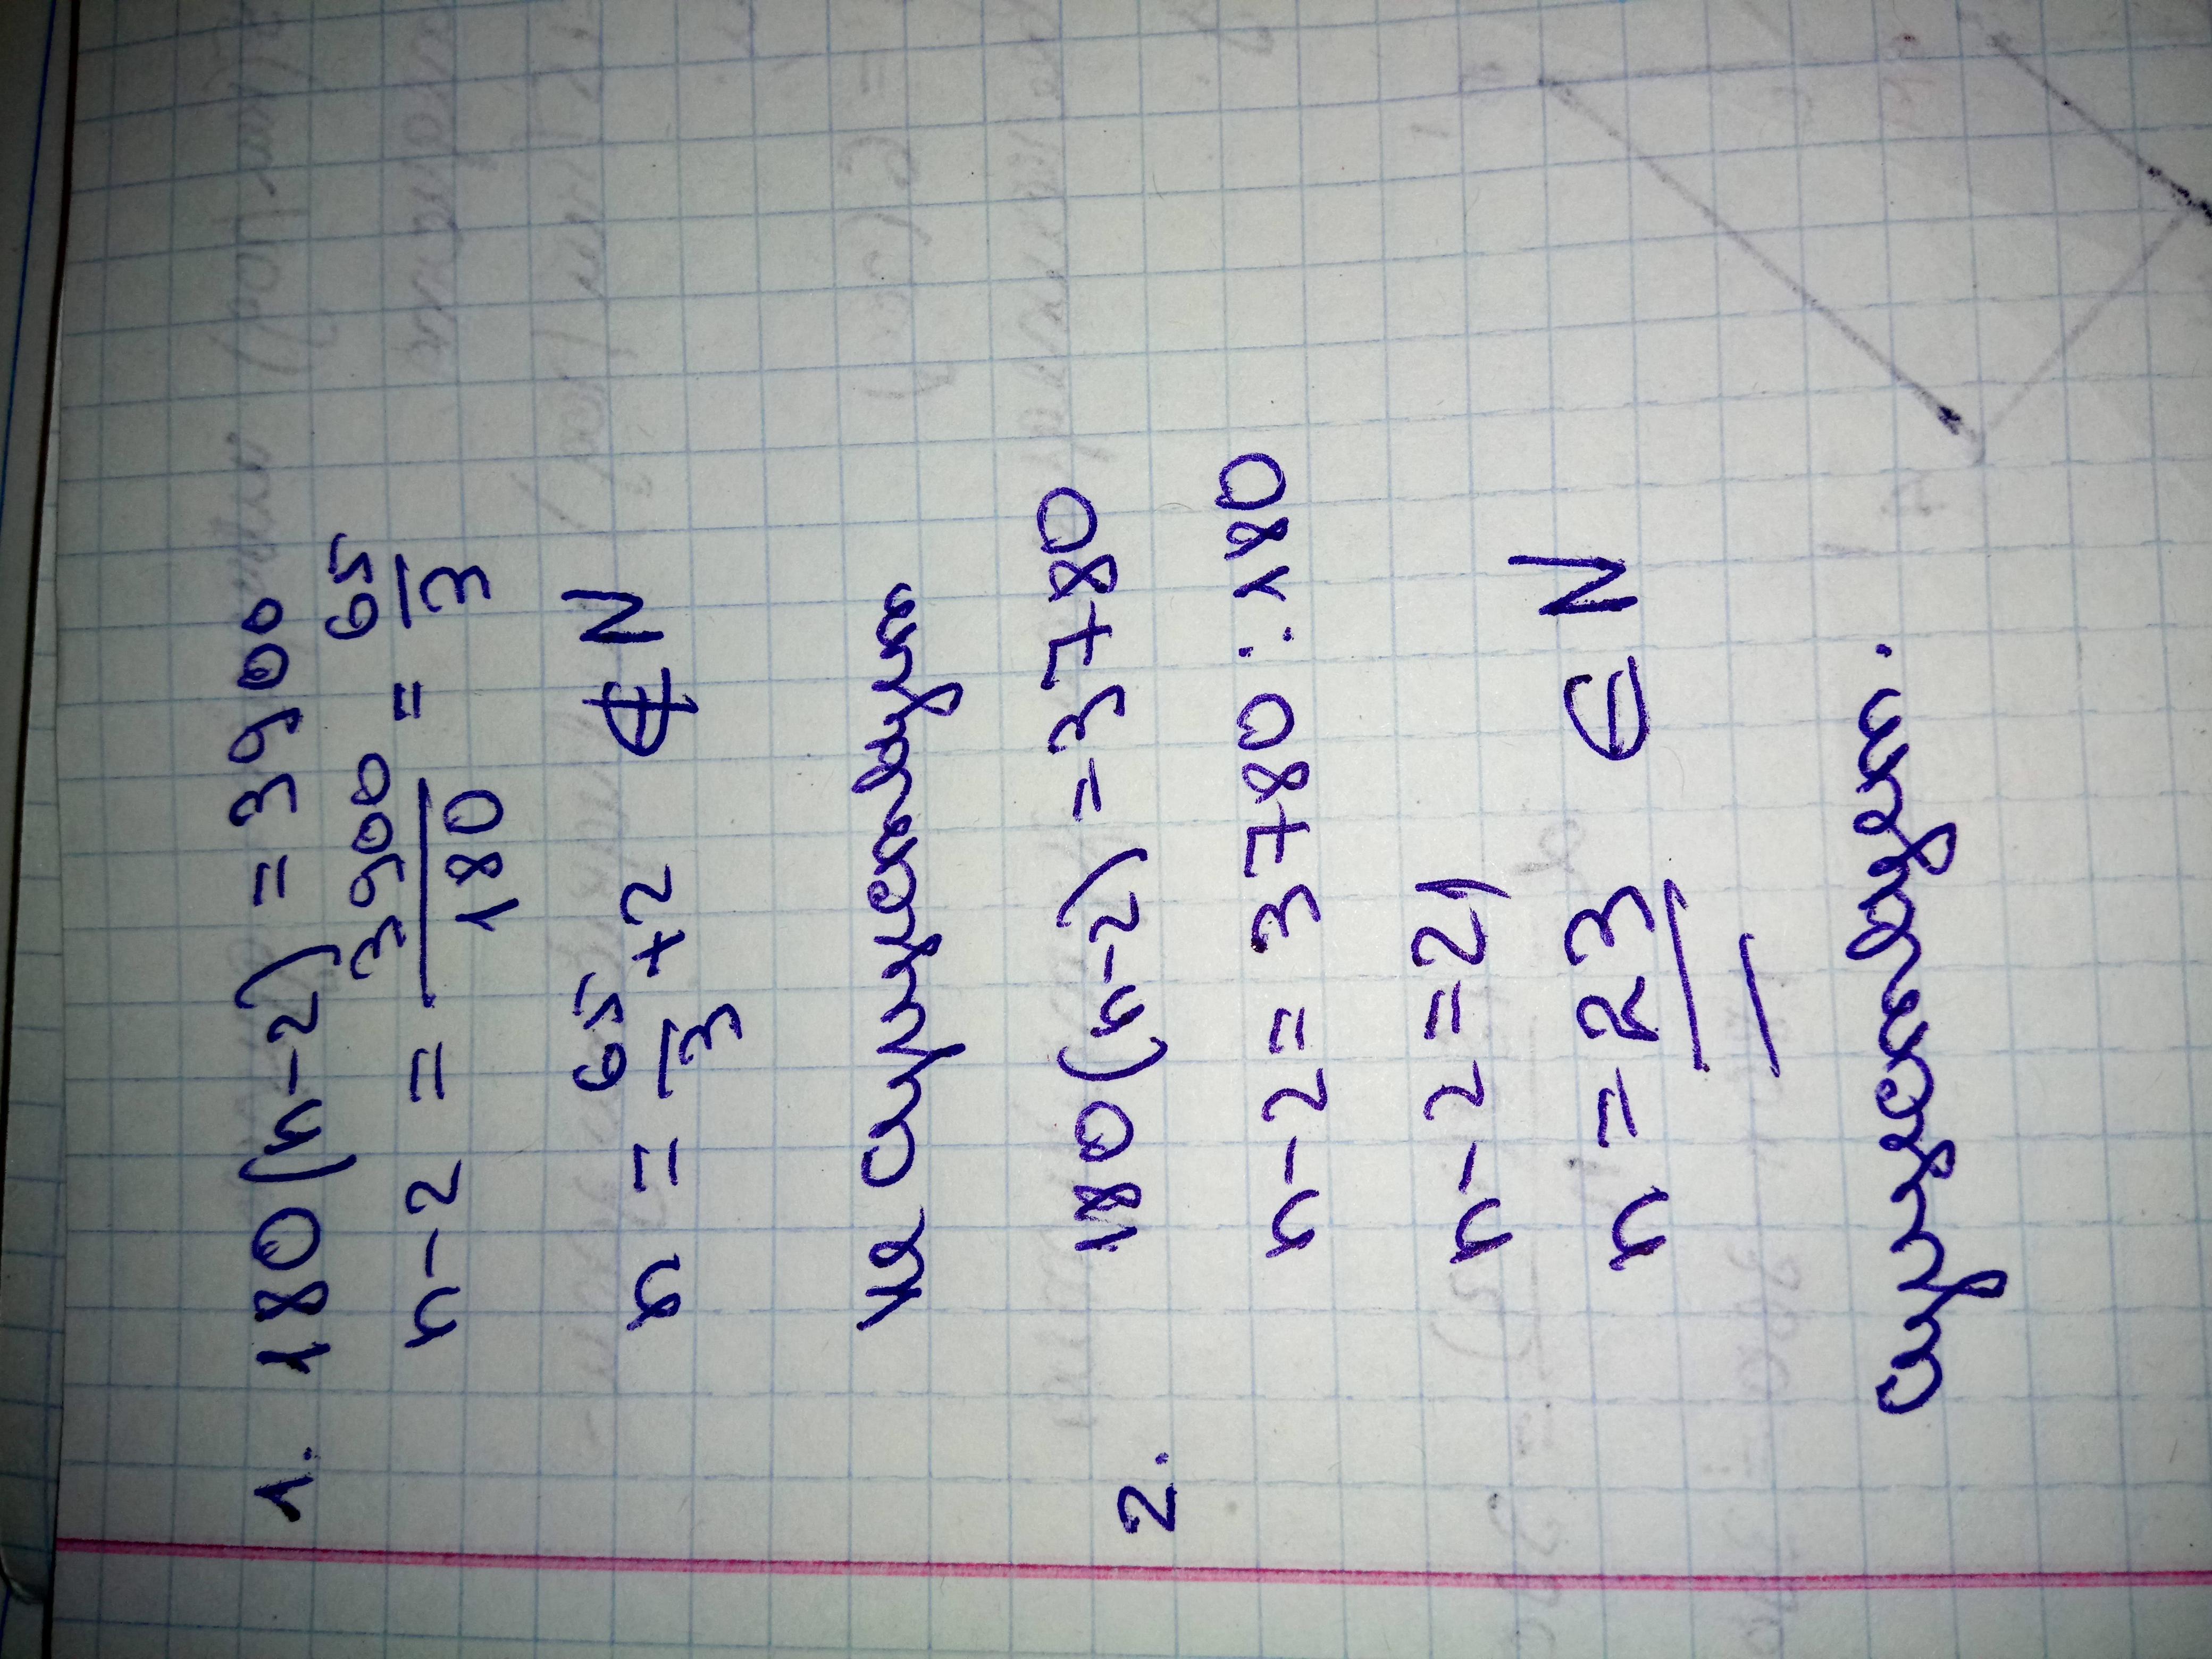 1. 180(n-2) = 3900
n-2 = 3900/180 = 65/3
n = 65/3 +2 ∉ N
не существует
2. 180(n-2) = 3780
n-2 = 3780 : 180
n-2 = 21
n = 23 ∈ N
существует.